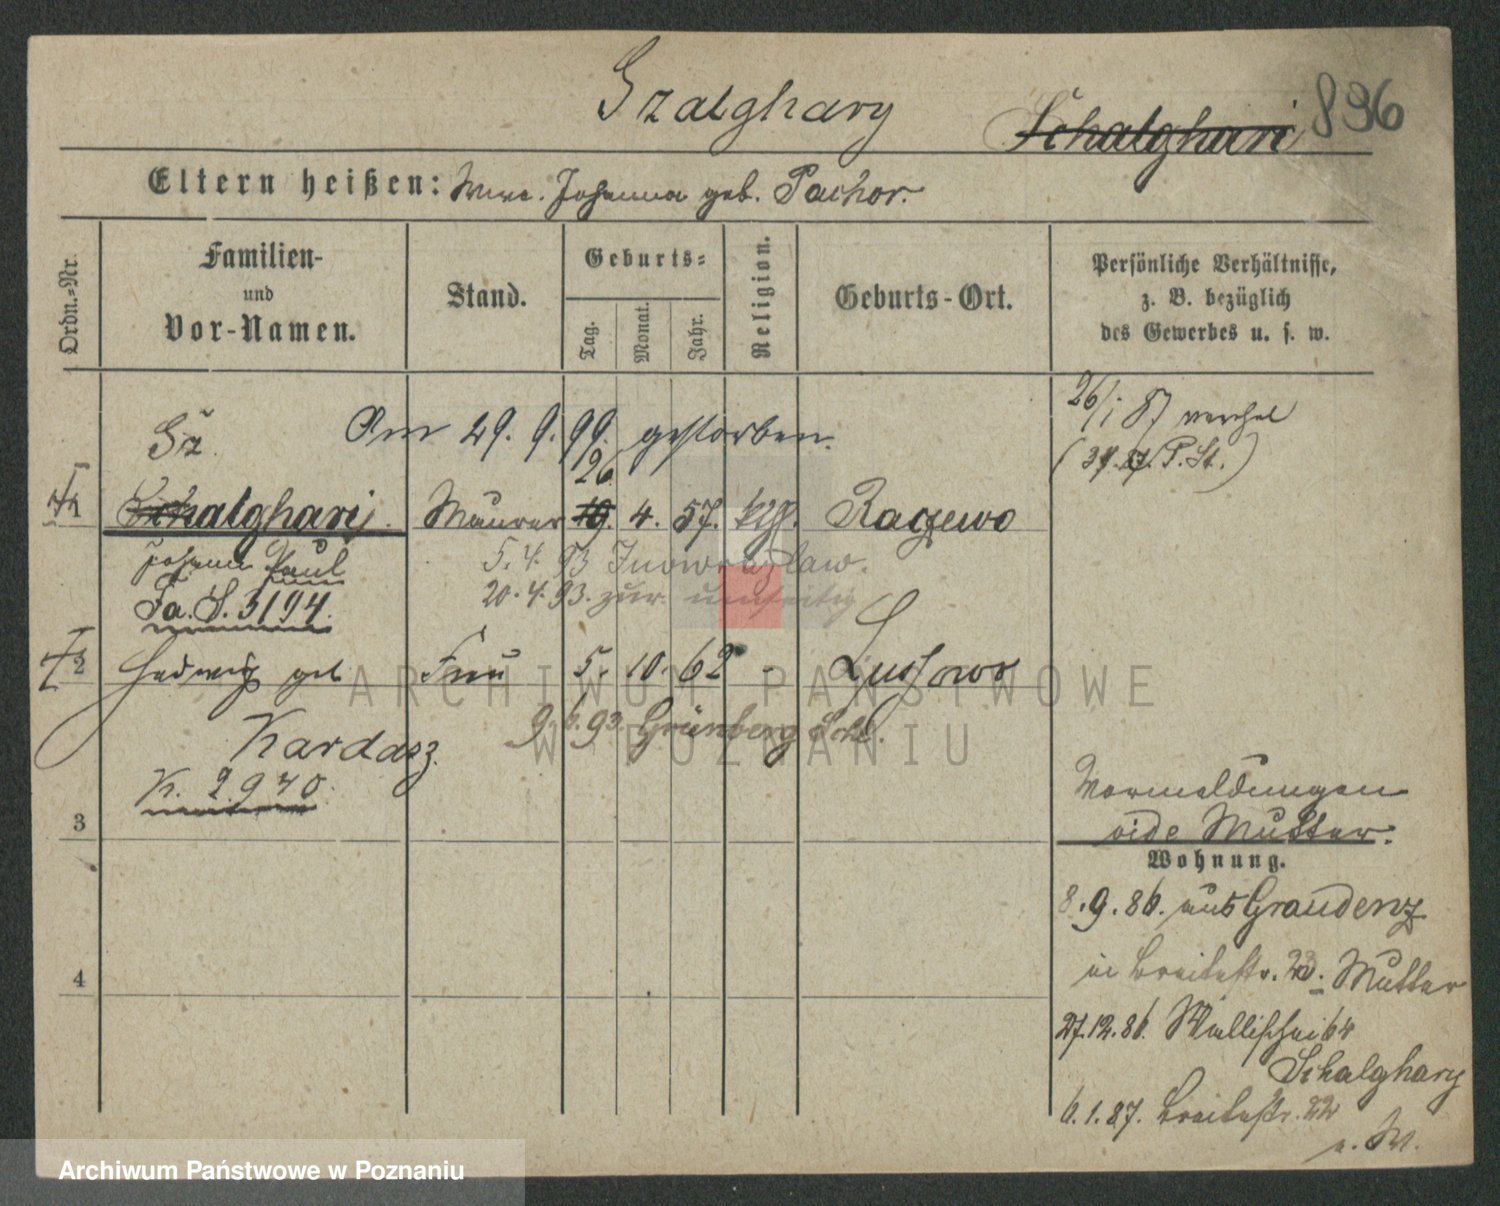 Szalghary
Schalghari 896
Eltern heißen: Wwe. Johanna geb. Pachor.
Ordn.-Nr.
Familien-
und
Vor-Namen.
Stand.
Geburts-
Tag.
Monat.
Jahr.
Religion.
Geburts-Ort.
Persönliche Verhältnisse,
z. B. bezüglich
des Gewerbes u. s. w.
26/1 87
P. St.)
Sz
Am 29. 9. 99. gestorben.
26
1 Schalgharij. Maurer 19. 4. 57. kth. Raczewo
Johann Paul
5. 4. 93 Inowrazlaw.
Fa. S. 3194.
20. 4. 93. zur.
2 Hedwig geb Frau 5. 10. 62 -
Kardasz.
9. 6. 93. Grünberg Schl.
K. 2940.
3
Vormeldungen
vide Mutter.
Wohnung.
8. 9. 86. aus Graudenz
in Breitestr. Mutter
4
27.12.86. Wallischei 64
Schalghary
6. 1. 87. Breitestr. 22
b. M.
ARCHIWUM PAŃSTWOWE
W POZNANIU
Archiwum Państwowe w Poznaniu